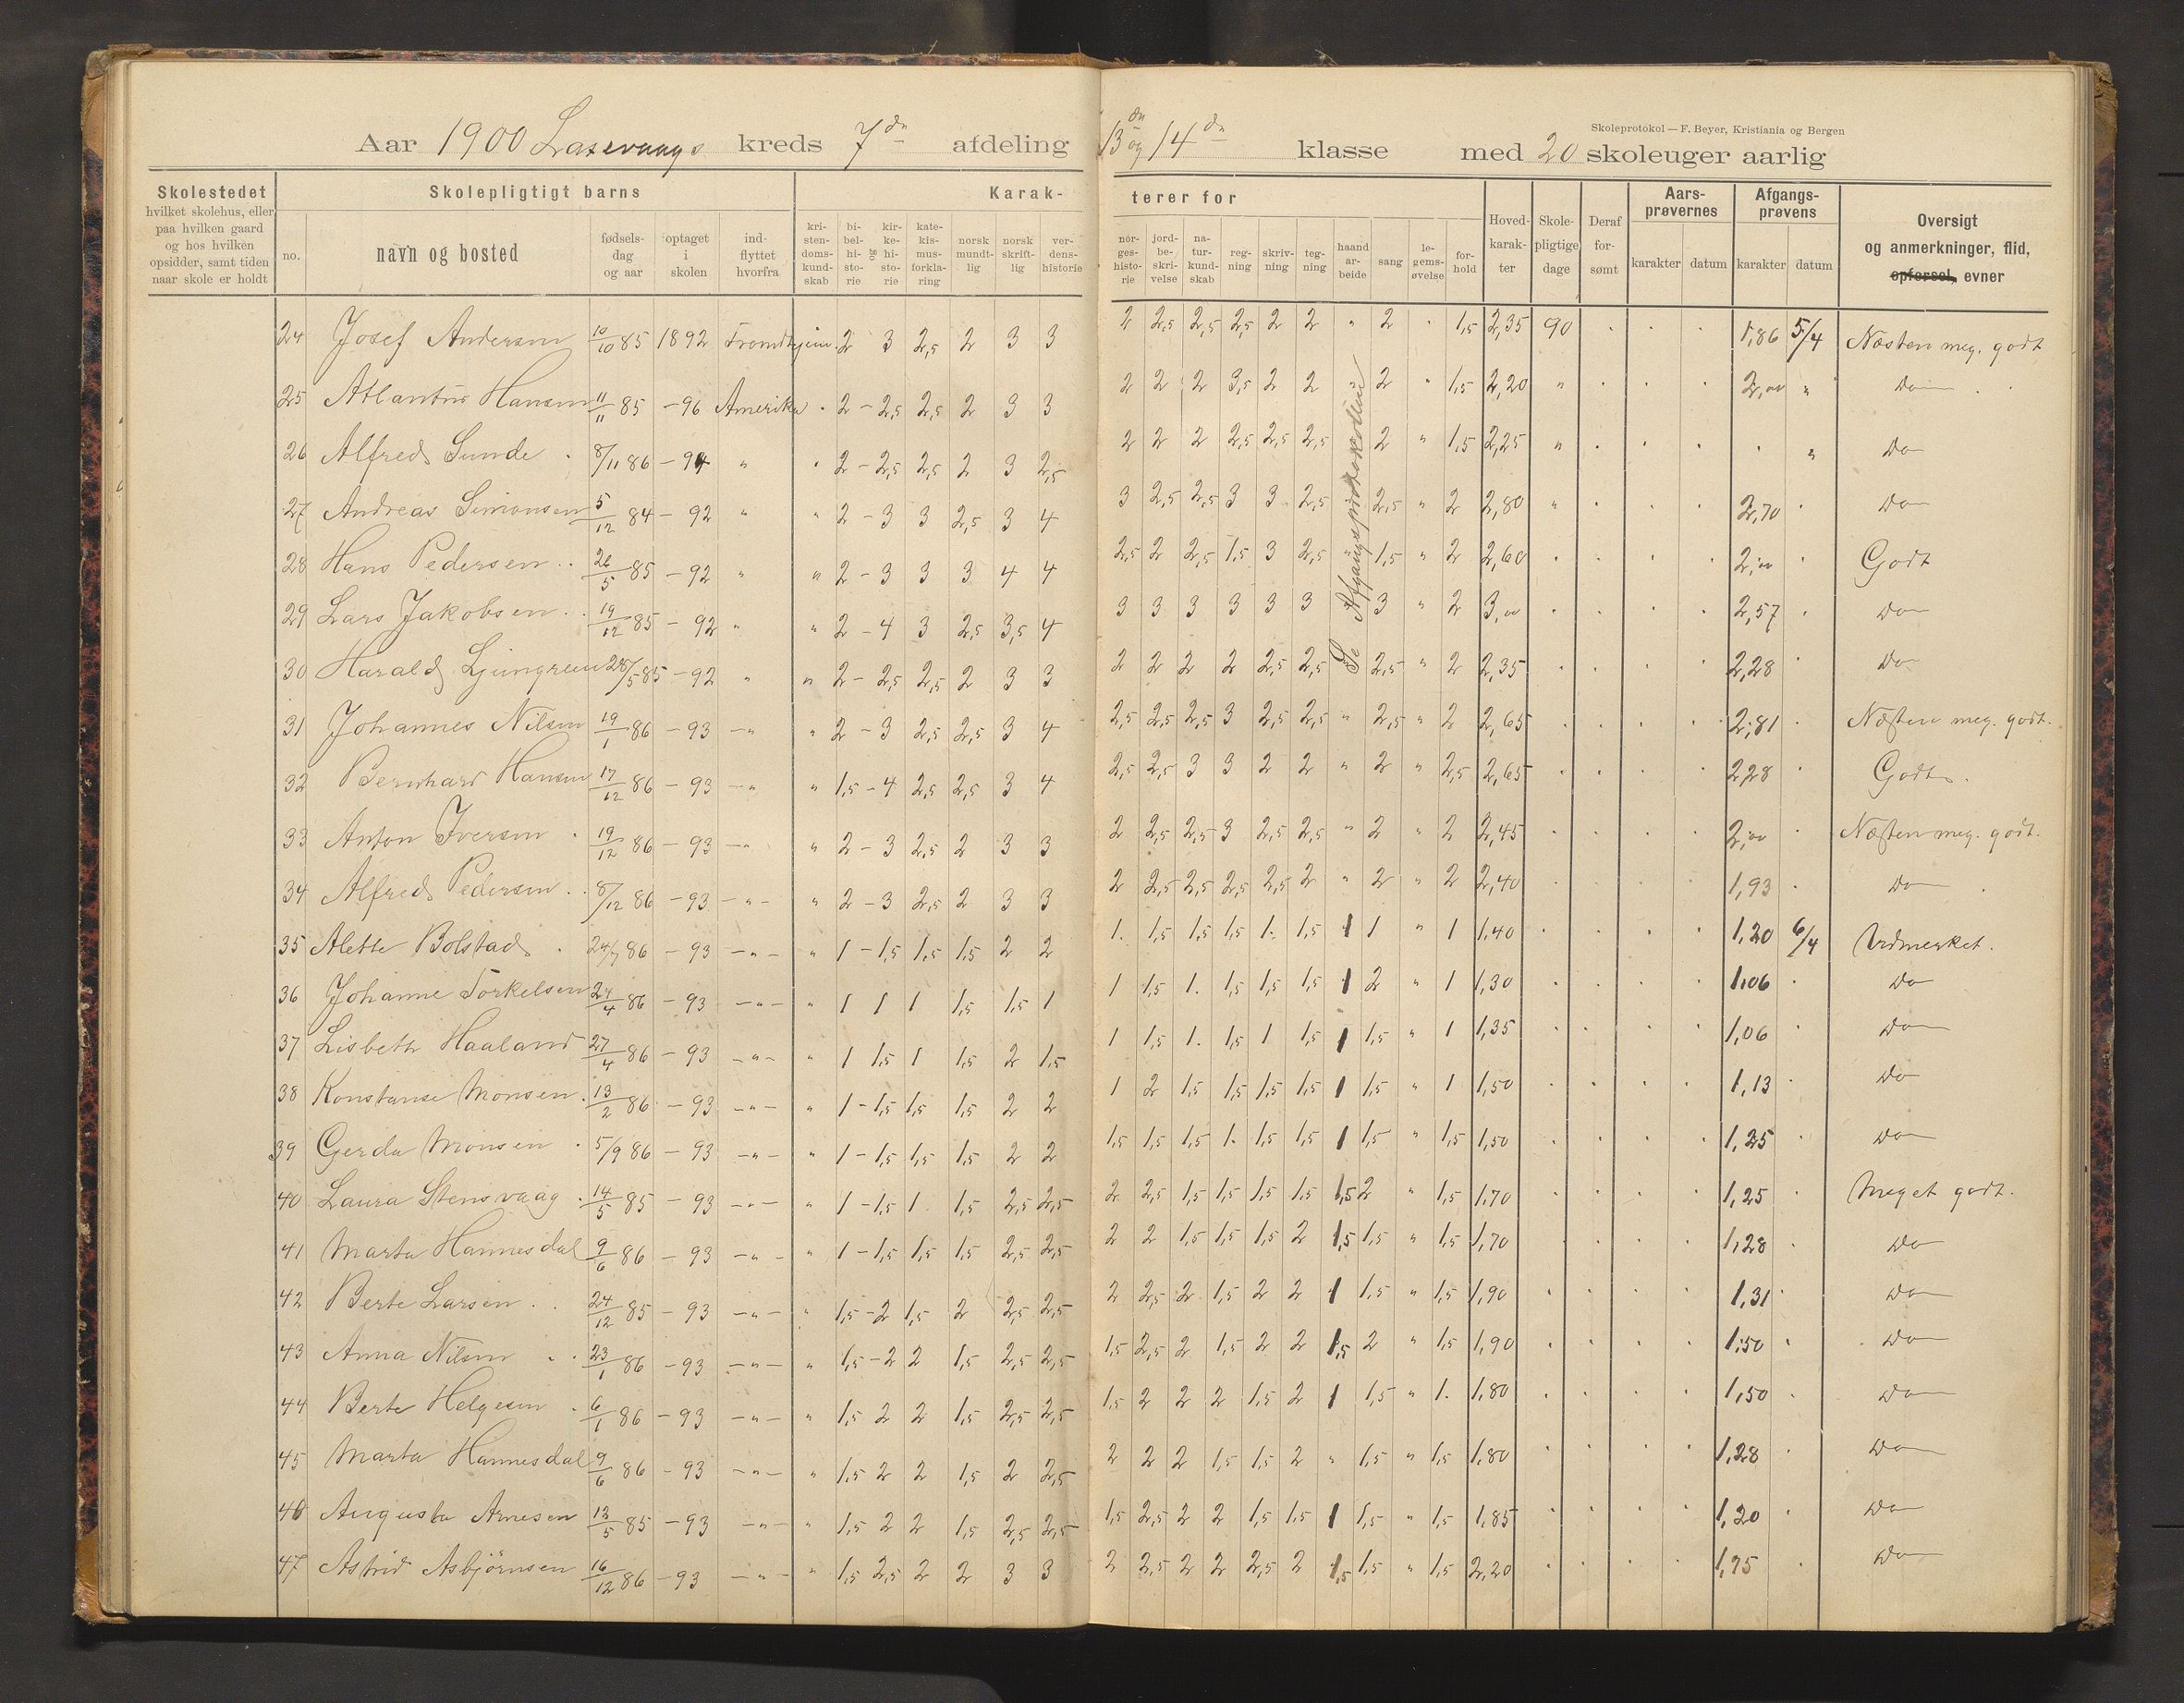 Skoleprotokol — F. Beyer, Kristiania og Bergen
Aar 1900 Laxevaags kreds 7de afdeling 13de og 14de klasse med 20 skoleuger aarlig
Skolestedet hvilket skolehus, eller paa hvilken gaard og hos hvilken opsidder, samt tiden naar skole er holdt
Skolepligtigt barns
no. navn og bosted fødselsdag og aar optaget i skolen indflyttet hvorfra
Karakterer for
kristendomskundskab bibelhistorie og kirkehistorie katekismusforklaring norsk mundtlig norsk skriftlig verdenshistorie norgeshistorie jordbeskrivelse naturkundskab regning skrivning tegning haandarbeide sang legemsøvelse forhold
Hovedkarakter Skolepligtige dage Deraf forsømt
Aarsprøvernes karakter datum
Afgangsprøvens karakter datum
Oversigt og anmerkninger, flid, opførsel, evner
Se Afgangsprotokollen
24 Josef Andersen 10/10 85 1892 Trondhjem 2 3 2,5 2 3 3 2 2,5 2,5 2,5 2 2 " 2 " 1,5 2,35 90 1,86 5/4 Næsten meg. godt
25 Atlantus Hansen 11/11 85 - 96 Amerika 2 - 2,5 2,5 2 3 3 2 2 2 3,5 2 2 " 2 " 1,5 2,20 " 2,00 " Do
26 Alfred Sunde 8/11 86 - 94 " 2 - 2,5 2,5 2 3 2,5 2 2 2 2,5 2,5 2,5 2 " 1,5 2,25 " " Do
27 Andreas Simonsen 5/12 84 - 92 " " 2 - 3 3 2,5 3 4 3 2,5 2,5 3 3 2,5 2,5 " 2 2,80 " 2,70 Do
28 Hans Pedersen 26/5 85 - 92 " " 2 - 3 3 3 4 4 2,5 2 2,5 1,5 3 2,5 1,5 " 2 2,60 2,00 Godt
29 Lars Jakobsen 19/12 85 - 92 " " 2 - 4 3 2,5 3,5 4 3 3 3 3 3 3 3 " 2 3,00 2,57 Do
30 Harald Ljungreen 28/5 85 - 92 " " 2 - 2,5 2,5 2 3 3 2 2 2 2 2,5 2,5 2,5 " 2 2,35 2,28 Do
31 Johannes Nilsen 19/1 86 - 93 - " " 2 - 3 2,5 2,5 3 4 2,5 2,5 2,5 3 2,5 2,5 " 2,5 " 2 2,65 2,81 Næsten meg. godt.
32 Bernhard Hansen 17/12 86 - 93 - " " 1,5 - 4 2,5 2,5 3 4 2,5 2,5 3 3 2 2 " 2 " 2,5 2,65 2,28 Godt
33 Anton Iversen 19/12 86 - 93 - " " 2 - 3 2,5 2 3 3 2 2,5 2,5 3 2,5 2,5 " 2 " 2 2,45 2,00 Næsten meg. godt.
34 Alfred Pedersen 8/12 86 - 93 - " - " 2 - 3 2,5 2 3 3 2 2,5 2,5 2,5 2,5 2 " 2 " 2 2,40 1,93 Do
35 Alette Bolstad 24/7 86 - 93 - " - " 1 - 1,5 1,5 1,5 2 2 1. 1,5 1,5 1,5 1. 1,5 1 1 " 1 1,40 1,20 6/4 Udmerket.
36 Johanne Torkelsen 24/4 86 - 93 - " - " 1 1 1 1,5 1,5 1 1 1,5 1. 1,5 1,5 1,5 1 2 " 1 1,30 1,06 Do
37 Lisbeth Haaland 27/4 86 - 93 - " - " 1 1,5 1 1,5 2 1,5 1 1,5 1. 1,5 1 1,5 1 1,5 " 1 1,35 1,06 Do
38 Konstanse Monsen 13/2 86 - 93 - " - " 1 - 1,5 1,5 1,5 2 2 1 2 1,5 1,5 1,5 1,5 1 1,5 " 1 1,50 1,13 Do
39 Gerda Monsen 5/9 86 - 93 - " - " 1 - 1,5 1,5 1,5 2 2 1,5 1,5 1,5 1. 1,5 1,5 1 1,5 " 1,5 1,50 1,25 Do
40 Laura Stensvaag 14/5 85 - 93 - " - " 1 - 1,5 1 1,5 2,5 2,5 2 2,5 1,5 1,5 1,5 1,5 1,5 2 " 1,5 1,70 1,25 Meget godt.
41 Marta Hannesdal 9/6 86 - 93 - " - " 1 - 1,5 1,5 1,5 2,5 2,5 2 2 1,5 1,5 1,5 2 1,5 1,5 " 1,5 1,70 1,28 Do
42 Berte Larsen 24/12 85 - 93 - " - " 1,5 - 2 1,5 2 2,5 2,5 2 2,5 2 1,5 2 2 1 1,5 " 1,5 1,90 1,31 Do
43 Anna Nilsen 23/1 86 - 93 - " - " 1,5 - 2 2 1,5 2,5 2,5 1,5 2,5 2 1,5 2 2 1,5 2 " 1,5 1,90 1,50 Do
44 Berte Helgesen 6/1 86 - 93 - " - " 1,5 2 2 1,5 2,5 2,5 1,5 2 2 2 1,5 2 1 1,5 " 1. 1,80 1,50 Do
45 Marta Hannesdal 9/6 86 - 93 - " - " 1,5 2 2 1,5 2 2,5 2 2 2 1,5 1,5 2 " 1,5 " 1,5 1,80 1,28 Do
46 Augusta Arnesen 12/5 85 - 93 - " - " 1,5 2 2 1,5 2,5 2,5 1,5 2,5 2 2 1,5 1,5 1 1,5 " 1,5 1,85 1,20 Do
47 Astrid Asbjörnsen 16/12 86 - 93 - " - " 1,5 2,5 2 2 3 3 2 2,5 2 2 2,5 2 1,5 1,5 " 1,5 2,20 1,75 Do